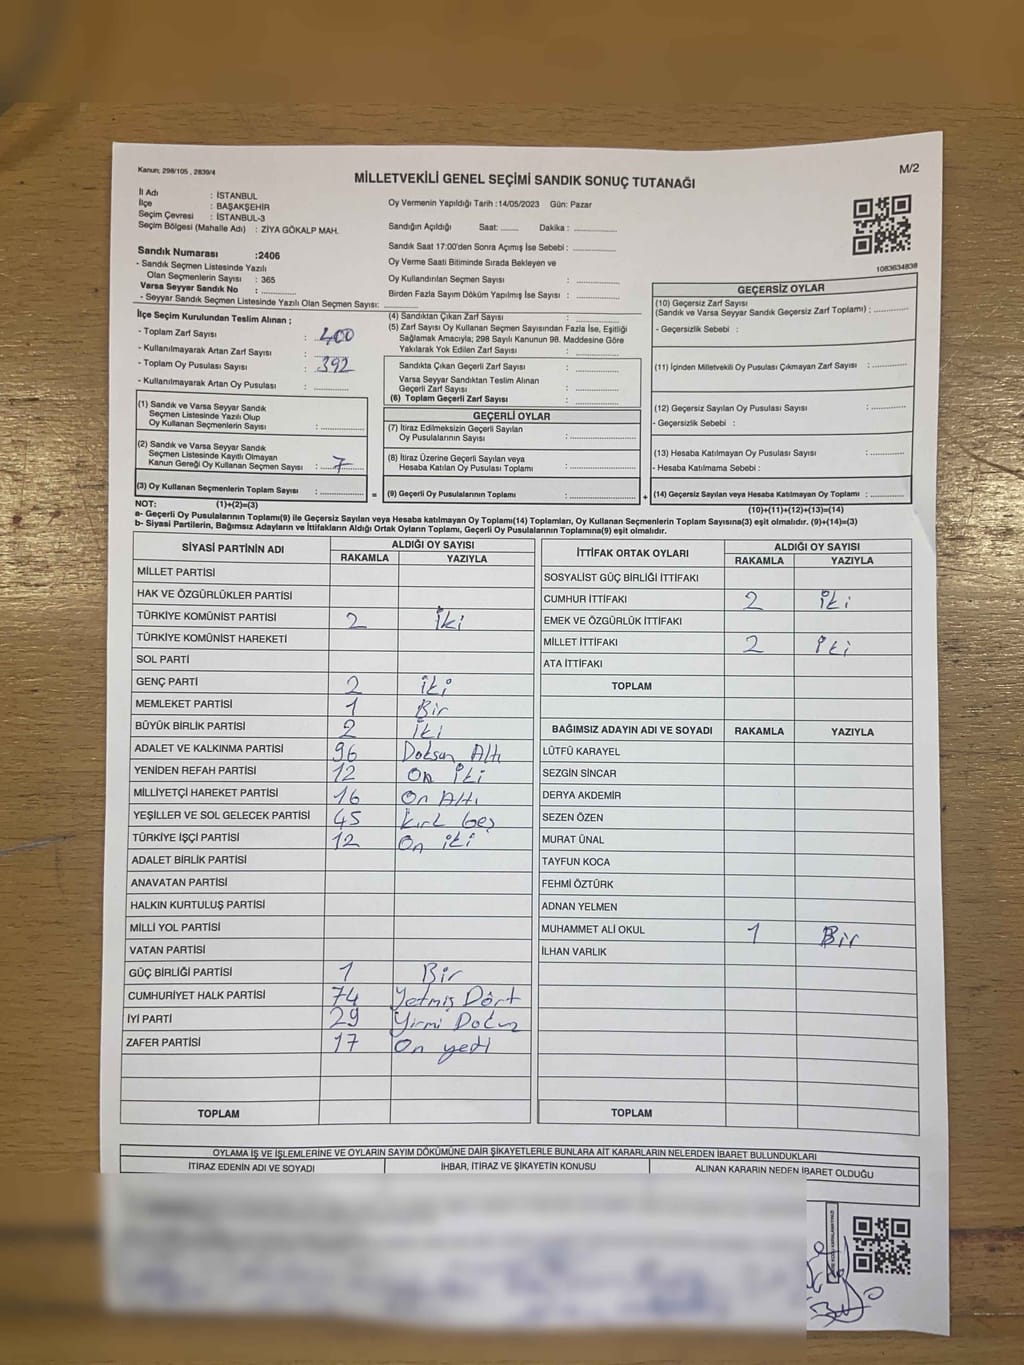 Kanun; 298/105 , 2839/4
M/2
MİLLETVEKİLİ GENEL SEÇİMİ SANDIK SONUÇ TUTANAĞI
İl Adı : İSTANBUL
İlçe : BAŞAKŞEHİR
Seçim Çevresi : İSTANBUL-3
Seçim Bölgesi (Mahalle Adı) : ZİYA GÖKALP MAH.
Sandık Numarası :2406
- Sandık Seçmen Listesinde Yazılı
Olan Seçmenlerin Sayısı : 365
Varsa Seyyar Sandık No : ............
- Seyyar Sandık Seçmen Listesinde Yazılı Olan Seçmen Sayısı: ............
Oy Vermenin Yapıldığı Tarih :14/05/2023 Gün: Pazar
Sandığın Açıldığı Saat: ...... Dakika : ............
Sandık Saat 17:00'den Sonra Açımış İse Sebebi : ............
Oy Verme Saati Bitiminde Sırada Bekleyen ve
Oy Kullandırılan Seçmen Sayısı : ............
Birden Fazla Sayım Döküm Yapılmış İse Sayısı : ............
1083634838
İlçe Seçim Kurulundan Teslim Alınan ;
- Toplam Zarf Sayısı : 400
- Kullanılmayarak Artan Zarf Sayısı : ............
- Toplam Oy Pusulası Sayısı : 392
- Kullanılmayarak Artan Oy Pusulası : ............
(1) Sandık ve Varsa Seyyar Sandık
Seçmen Listesinde Yazılı Olup
Oy Kullanan Seçmenlerin Sayısı : ............
(2) Sandık ve Varsa Seyyar Sandık
Seçmen Listesinde Kayıtlı Olmayan
Kanun Gereği Oy Kullanan Seçmen Sayısı : 7
(3) Oy Kullanan Seçmenlerin Toplam Sayısı : ............ =
(4) Sandıktan Çıkan Zarf Sayısı : ............
(5) Zarf Sayısı Oy Kullanan Seçmen Sayısından Fazla İse, Eşitliği
Sağlamak Amacıyla; 298 Sayılı Kanunun 98. Maddesine Göre
Yakılarak Yok Edilen Zarf Sayısı : ............
Sandıkta Çıkan Geçerli Zarf Sayısı : ............
Varsa Seyyar Sandıktan Teslim Alınan
Geçerli Zarf Sayısı : ............
(6) Toplam Geçerli Zarf Sayısı : ............
GEÇERLİ OYLAR
(7) İtiraz Edilmeksizin Geçerli Sayılan
Oy Pusulalarının Sayısı : ............
(8) İtiraz Üzerine Geçerli Sayılan veya
Hesaba Katılan Oy Pusulası Toplamı : ............
(9) Geçerli Oy Pusulalarının Toplamı : ............ +
GEÇERSİZ OYLAR
(10) Geçersiz Zarf Sayısı
(Sandık ve Varsa Seyyar Sandık Geçersiz Zarf Toplamı) : ............
- Geçersizlik Sebebi :
(11) İçinden Milletvekili Oy Pusulası Çıkmayan Zarf Sayısı : ............
(12) Geçersiz Sayılan Oy Pusulası Sayısı : ............
- Geçersizlik Sebebi :
(13) Hesaba Katılmayan Oy Pusulası Sayısı : ............
- Hesaba Katılmama Sebebi :
(14) Geçersiz Sayılan veya Hesaba Katılmayan Oy Toplamı : ............
NOT: (1)+(2)=(3)
(10)+(11)+(12)+(13)=(14)
a- Geçerli Oy Pusulalarının Toplamı(9) ile Geçersiz Sayılan veya Hesaba katılmayan Oy Toplamı(14) Toplamları, Oy Kullanan Seçmenlerin Toplam Sayısına(3) eşit olmalıdır. (9)+(14)=(3)
b- Siyasi Partilerin, Bağımsız Adayların ve İttifakların Aldığı Ortak Oyların Toplamı, Geçerli Oy Pusulalarının Toplamına(9) eşit olmalıdır.
SİYASİ PARTİNİN ADI ALDIĞI OY SAYISI
RAKAMLA YAZIYLA
MİLLET PARTİSİ
HAK VE ÖZGÜRLÜKLER PARTİSİ
TÜRKİYE KOMÜNİST PARTİSİ 2 İki
TÜRKİYE KOMÜNİST HAREKETİ
SOL PARTİ
GENÇ PARTİ 2 İki
MEMLEKET PARTİSİ 1 Bir
BÜYÜK BİRLİK PARTİSİ 2 İki
ADALET VE KALKINMA PARTİSİ 96 Doksan Altı
YENİDEN REFAH PARTİSİ 12 On İki
MİLLİYETÇİ HAREKET PARTİSİ 16 On Altı
YEŞİLLER VE SOL GELECEK PARTİSİ 45 Kırk beş
TÜRKİYE İŞÇİ PARTİSİ 12 On iki
ADALET BİRLİK PARTİSİ
ANAVATAN PARTİSİ
HALKIN KURTULUŞ PARTİSİ
MİLLİ YOL PARTİSİ
VATAN PARTİSİ
GÜÇ BİRLİĞİ PARTİSİ 1 Bir
CUMHURİYET HALK PARTİSİ 74 Yetmiş Dört
İYİ PARTİ 29 Yirmi Dokuz
ZAFER PARTİSİ 17 On yedi
TOPLAM
İTTİFAK ORTAK OYLARI ALDIĞI OY SAYISI
RAKAMLA YAZIYLA
SOSYALİST GÜÇ BİRLİĞİ İTTİFAKI
CUMHUR İTTİFAKI 2 İki
EMEK VE ÖZGÜRLÜK İTTİFAKI
MİLLET İTTİFAKI 2 İki
ATA İTTİFAKI
TOPLAM
BAĞIMSIZ ADAYIN ADI VE SOYADI RAKAMLA YAZIYLA
LÜTFÜ KARAYEL
SEZGİN SİNCAR
DERYA AKDEMİR
SEZEN ÖZEN
MURAT ÜNAL
TAYFUN KOCA
FEHMİ ÖZTÜRK
ADNAN YELMEN
MUHAMMET ALİ OKUL 1 Bir
İLHAN VARLIK
TOPLAM
OYLAMA İŞ VE İŞLEMLERİNE VE OYLARIN SAYIM DÖKÜMÜNE DAİR ŞİKAYETLERLE BUNLARA AİT KARARLARIN NELERDEN İBARET BULUNDUKLARI
İTİRAZ EDENİN ADI VE SOYADI İHBAR, İTİRAZ VE ŞİKAYETİN KONUSU ALINAN KARARIN NEDEN İBARET OLDUĞU